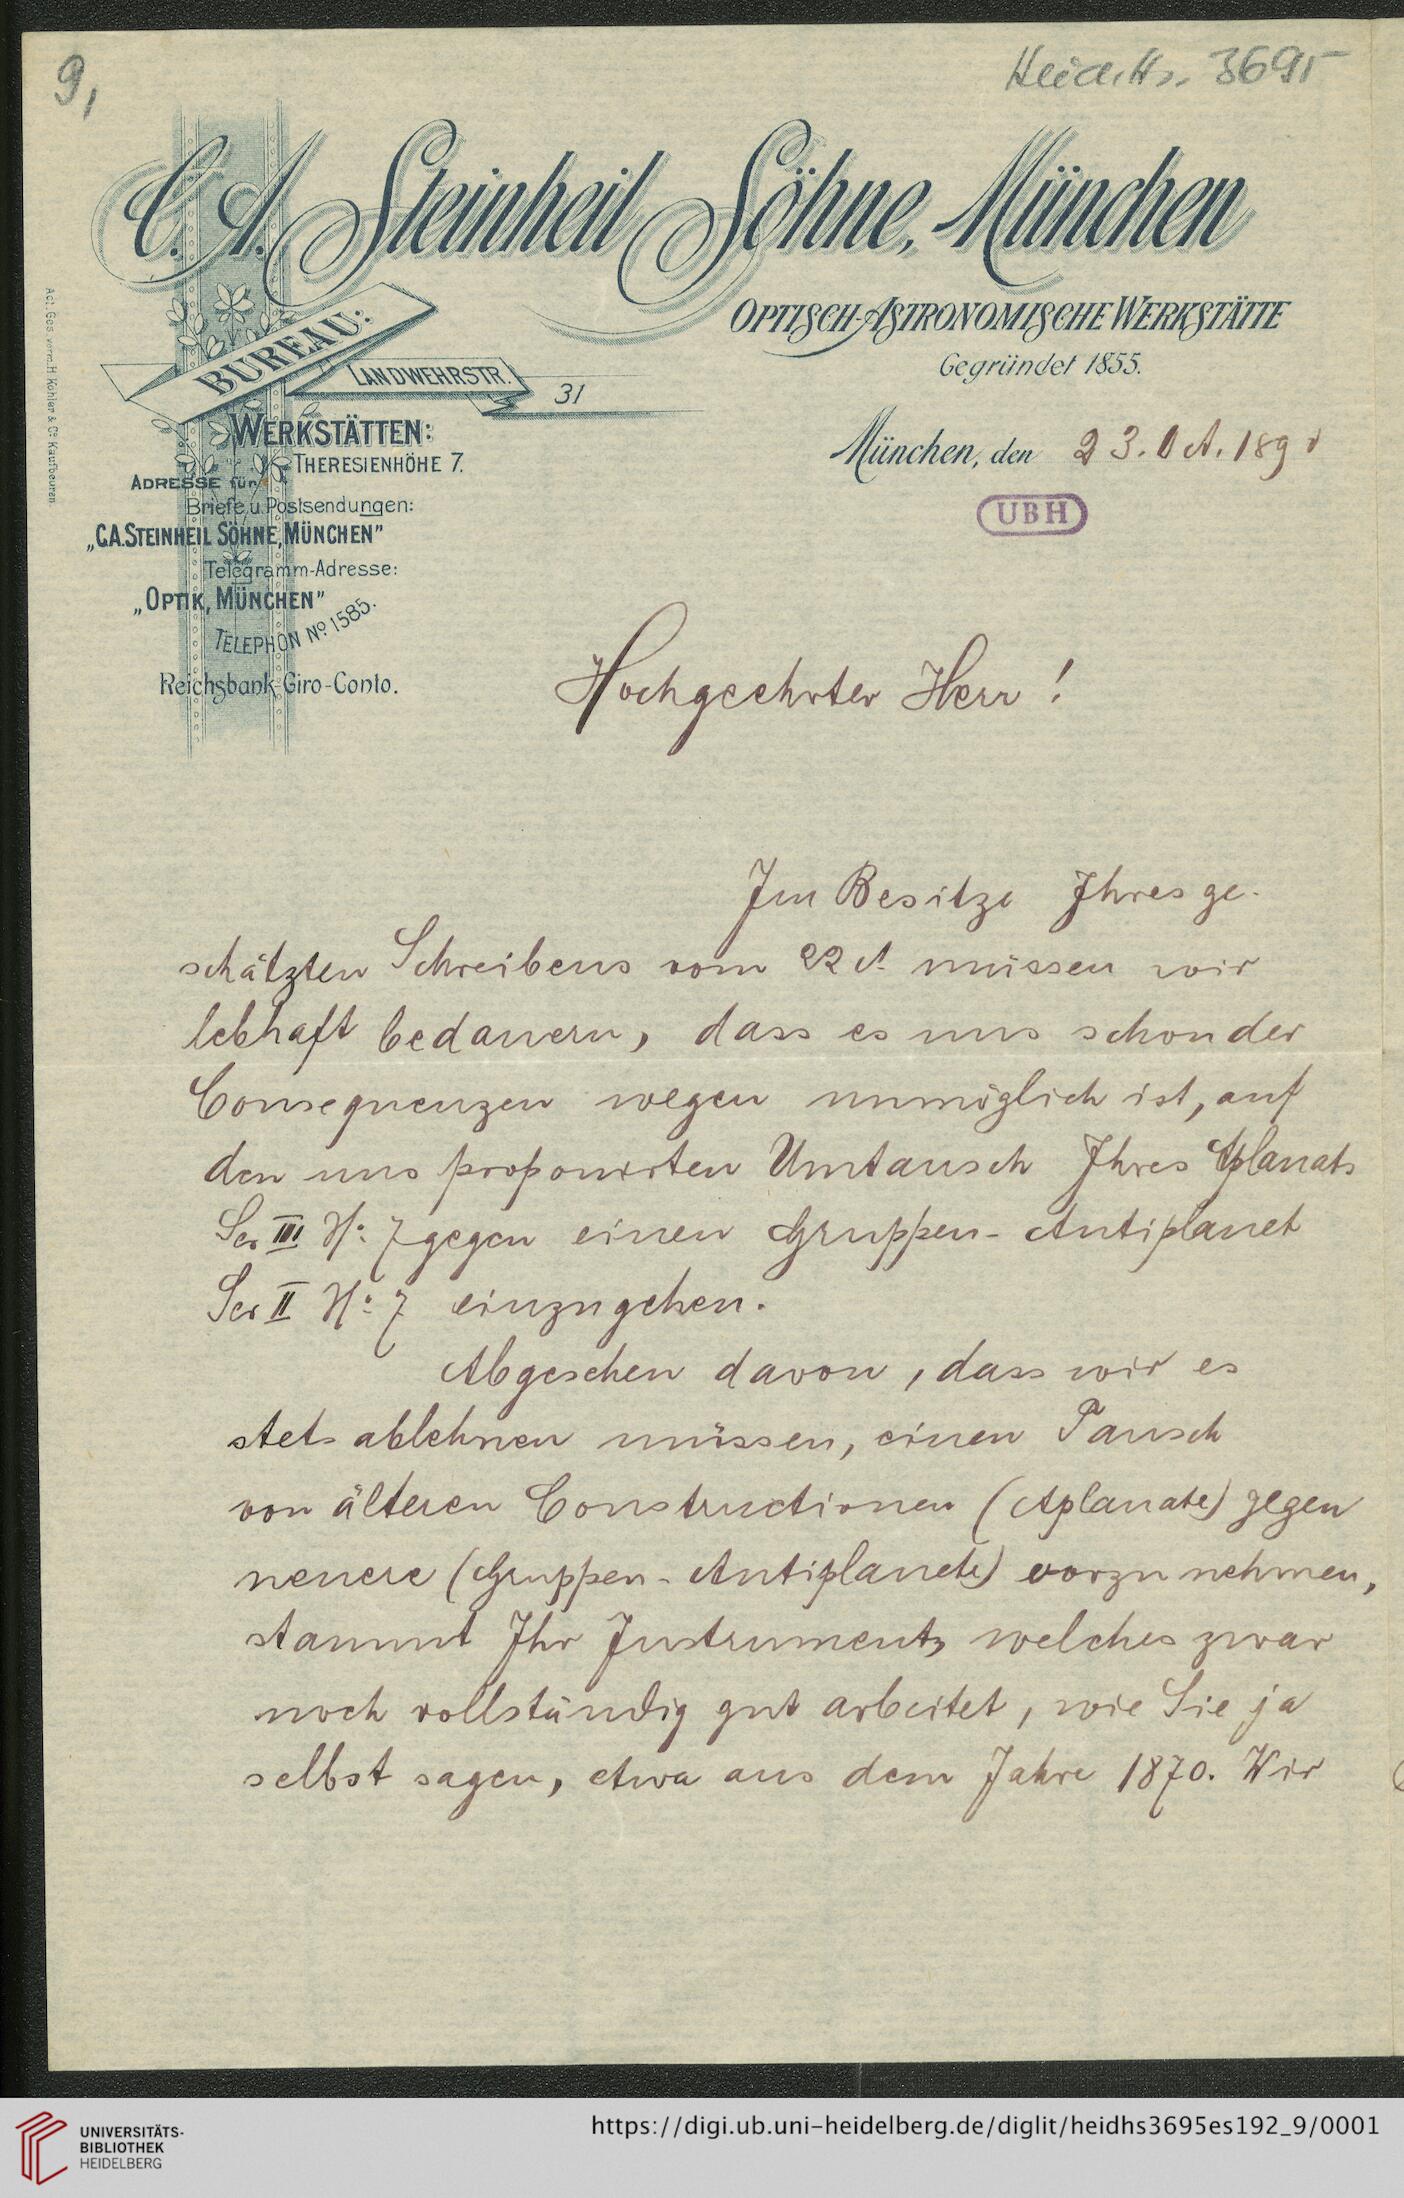 9,
Heid.Hs. 3695
C. A. Steinheil Söhne, München
OPTISCH-ASTRONOMISCHE WERKSTÄTTE
Gegründet 1855.
BUREAU:
LANDWEHRSTR. 31
WERKSTÄTTEN:
THERESIENHÖHE 7.
ADRESSE für
Briefe u. Postsendungen:
„C.A. STEINHEIL SÖHNE, MÜNCHEN"
Telegramm-Adresse:
„OPTIK, MÜNCHEN"
TELEPHON No 1585.
Reichsbank-Giro-Conto.
Act. Ges. vorm. H. Kohler & Co Kaufbeuren.
München, den 23. Oct. 189
UBH
Hochgeehrter Herr!
Im Besitze Ihres ge-
schätzten Schreibens vom 22 ct. müssen wir
lebhaft bedauern, dass es uns schon der
Consequenzen wegen unmöglich ist, auf
den uns proponirten Umtausch Ihres Aplanats
Ser III No: 7 gegen einen Gruppen-Antiplanet
Ser II No: 7 einzugehen.
Abgesehen davon, dass wir es
stets ablehnen müssen, einen Tausch
von älteren Constructionen (Aplanate) gegen
neuere (Gruppen-Antiplanete) vorzunehmen,
stammt Ihr Instrument, welches zwar
noch vollständig gut arbeitet, wie Sie ja
selbst sagen, etwa aus dem Jahre 1870. Wir
UNIVERSITÄTS-
BIBLIOTHEK
HEIDELBERG
https://digi.ub.uni-heidelberg.de/diglit/heidhs3695es192_9/0001